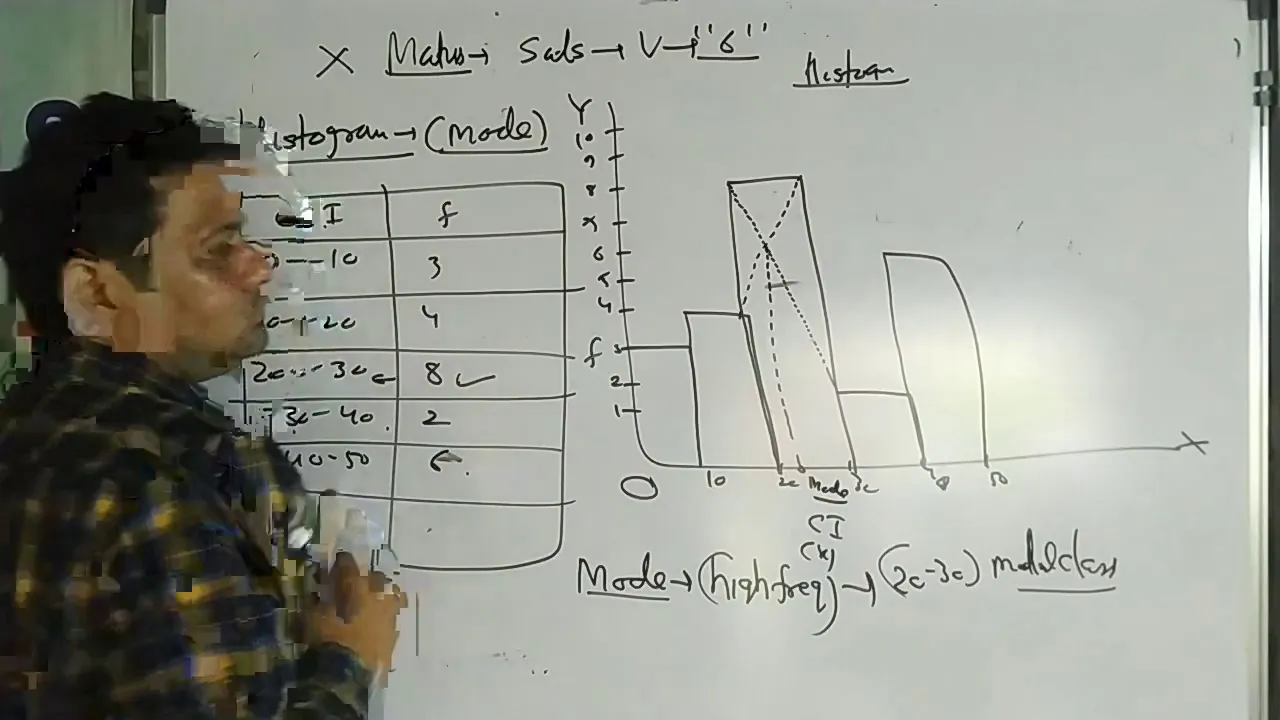 X Maths → Stats → V → "6"
Histogram
Histogram → (Mode)
C I f
0 - 10 3
10 - 20 4
20 - 30 8 ✓
30 - 40 2
40 - 50 6
Y
10
9
8
7
6
5
4
f 3
2
1
O 10 20 Mode 30 40 50 X
CI
(x)
Mode → (high freq) → (20-30) modal class